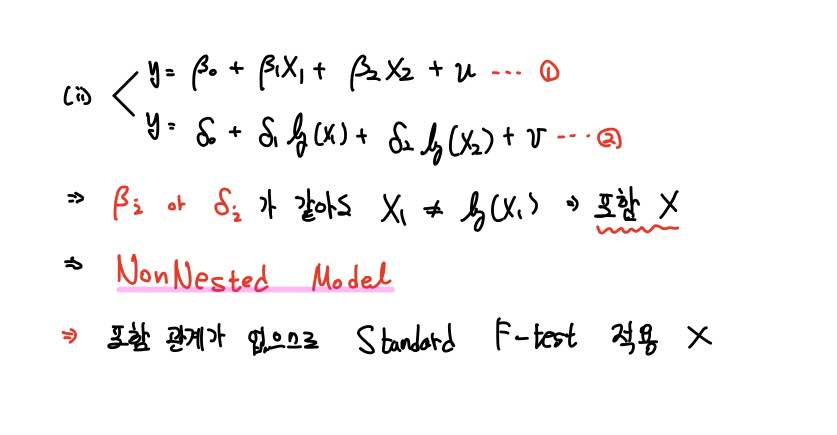 (ii) y = β₀ + β₁X₁ + β₂X₂ + u ··· ①
y = δ₀ + δ₁ log(X₁) + δ₂ log(X₂) + v ··· ②
⇒ βⱼ 와 δⱼ 가 같아도 X₁ ≠ log(X₁) ⇒ 포함 X
⇒ NonNested Model
⇒ 포함 관계가 없으므로 Standard F-test 적용 X